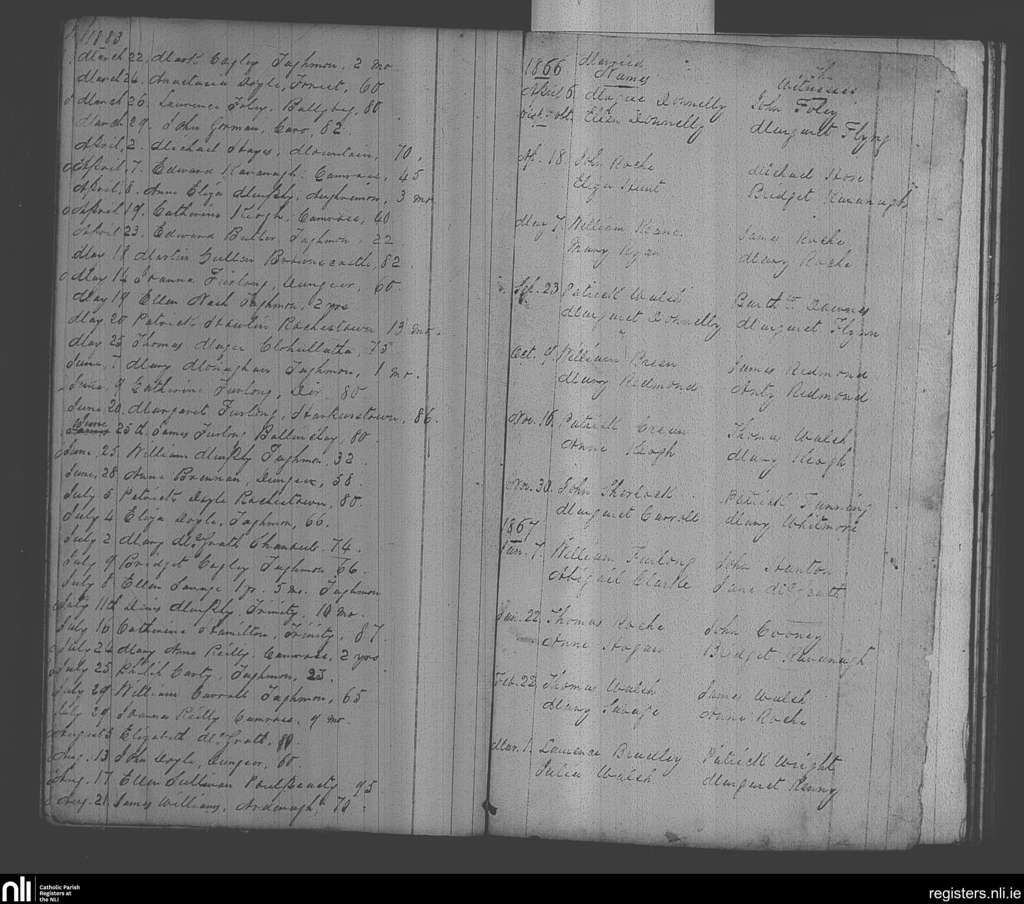 1883
March 22, Mart. Cagley Taghmon, 2 mo
March 26, Anastasia Doyle, Forrest, 60
March 26, Laurence Foley, Ballybeg, 80
March 29, John Gorman, Caro, 82.
April, 2. Michael Hayes, Mountain, 70,
April, 7. Edward Kavanagh, Camross, 45
April, 8. Anne Eliza Murphy, Aughermon, 3 mo
April 19, Catherine Keogh, Camross, 40
April 23, Edward Butler Taghmon, 22
May 18 Martin Cullen Browncastle, 82
May 16 Joanna Furlong, Dungeer, 60
May 19 Ellen Nash Taghmon, 2 yrs
May 20 Patrick Howlin Rochestown 13 mo.
May 25 Thomas Mager 75
June, 7 Mary Taghmon, 1 mo.
June, 9 Catherine Furlong, 80
June 20, Margaret Furlong, Harkerstown, 86.
June 25th James Furlong 80
June, 25, William Murphy Taghmon, 32
June, 28 Anne Brennan, Dungeer, 58
July 5 Patrick Doyle Rochestown, 80
July 4 Eliza Doyle, Taghmon, 66.
July 2 Mary McGrath 74.
July 9 Bridget Cagley Taghmon 76.
July 8 Ellen Savage 1 yr. 5 mo. Taghmon
July 11th Denis Murphy, Trinity, 10 mo.
July 16 Catherine Hamilton, Trinity, 87.
July 24 Mary Anne Reilly, Camross, 2 yrs
July 25 Philip Carty, Taghmon, 23.
July 29 William Carroll Taghmon, 65
July 29 Joanna Reilly Camross, 9 mo.
August 5 Elizabeth McGrath, 80.
Aug. 13 John Doyle, Dungeer, 60.
Aug. 17 Ellen Sullivan Poulpeasty 95
Aug. 21 James Williams, 70
1866 Married The
Names Witnesses
April 6, Magee Donnelly John Foley
Ellen Donnelly Margaret Flynn
Ap. 18 John Roche Michael Hore
Eliza Bridget Kavanagh
May 7, William Keane James Roche
Mary Ryan Mary Roche
Sep. 23 Patrick Walsh Barthw Downes
Margaret Donnelly Margaret Flynn
Oct. 9, William Breen James Redmond
Mary Redmond Anty Redmond
Nov. 16, Patrick Crean Thomas Walsh
Anne Keogh Mary Keogh
Nov. 30, John Sherlock Patrick Tunning
Margaret Carroll Mary Whitmore
1867
Jan. 7. William Furlong John Stanton
Abigail Clarke Jane McGrath
Jan. 22, Thomas Roche John Cooney
Anne Hogan Bridget Kavanagh
Feb. 22, Thomas Walsh James Walsh
Mary Savage Anne Roche
Mar. 1, Laurence Bradley Patrick Wright
Julia Walsh Margaret Kenny
nli Catholic Parish
Registers at
the NLI
registers.nli.ie